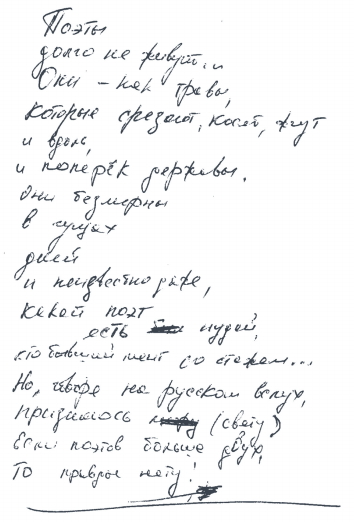 Поэты
долго не живут...
Они – как травы,
которые срезают, косят, жгут
и вдоль,
и поперёк державы.
Они безмерны
в
дней
и неизвестно даже,
какой поэт
есть иудей,
кто бывший мент со стажем...
Но, говоря на русском вслух,
признаюсь (свету)
Если поэтов больше двух,
То правды нету!